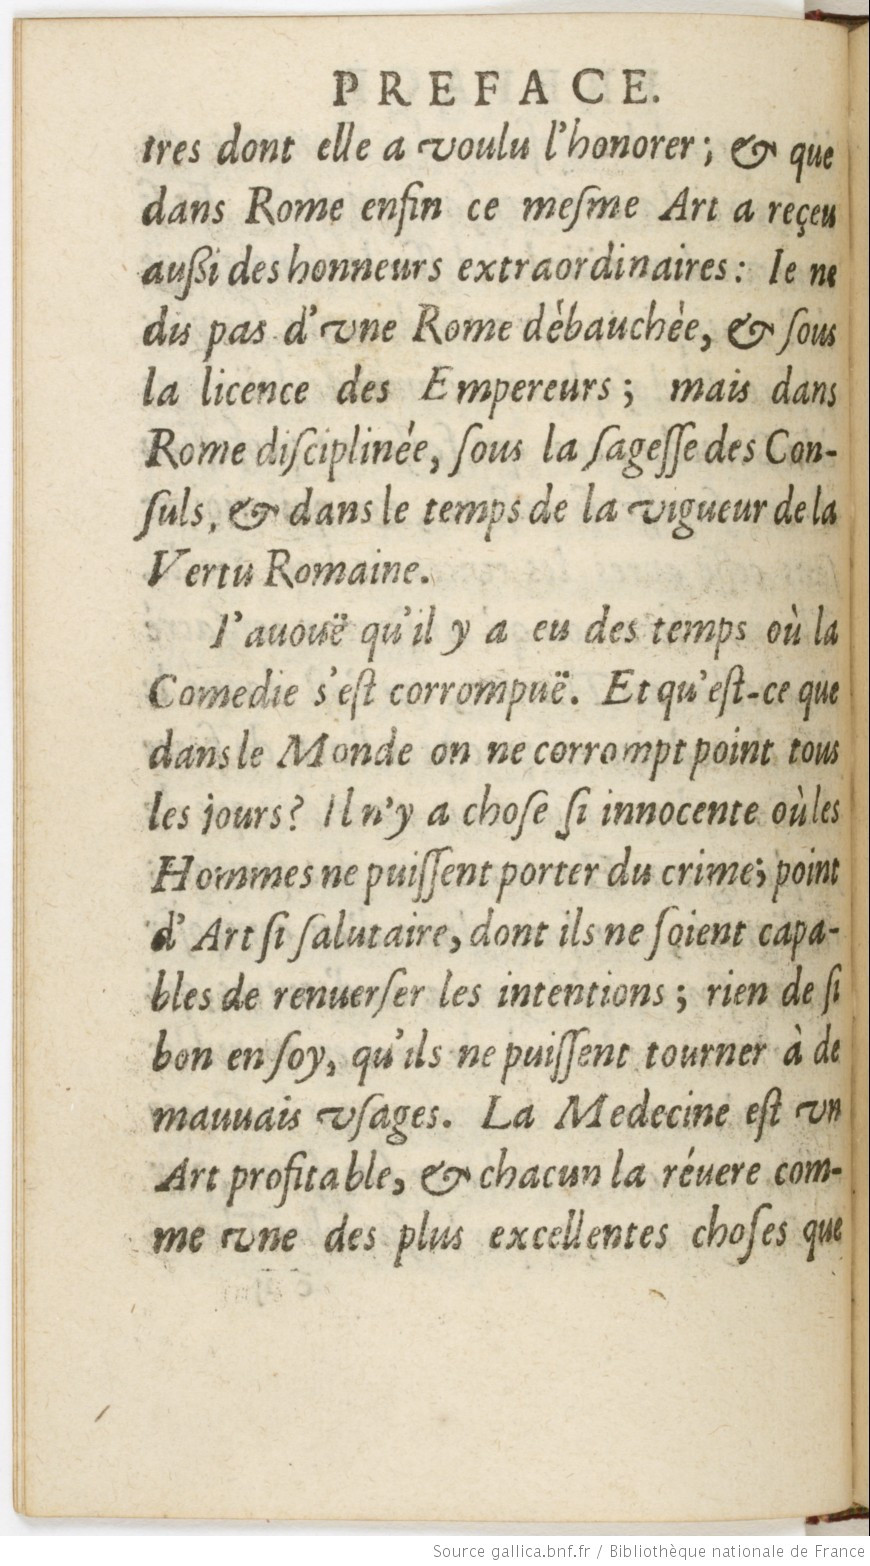 PREFACE.
tres dont elle a voulu l'honorer; & que
dans Rome enfin ce meſme Art a reçeu
außi des honneurs extraordinaires: Ie ne
dis pas d'vne Rome débauchée, & ſous
la licence des Empereurs; mais dans
Rome diſciplinée, ſous la ſageſſe des Con-
ſuls, & dans le temps de la vigueur de la
Vertu Romaine.
I'auouë qu'il y a eu des temps où la
Comedie s'eſt corrompuë. Et qu'eſt-ce que
dans le Monde on ne corrompt point tous
les jours? Il n'y a choſe ſi innocente où les
Hommes ne puiſſent porter du crime; point
d'Art ſi ſalutaire, dont ils ne ſoient capa-
bles de renuerſer les intentions; rien de ſi
bon en ſoy, qu'ils ne puiſſent tourner à de
mauuais vſages. La Medecine eſt vn
Art profitable, & chacun la réuere com-
me vne des plus excellentes choſes que
Source gallica.bnf.fr / Bibliothèque nationale de France